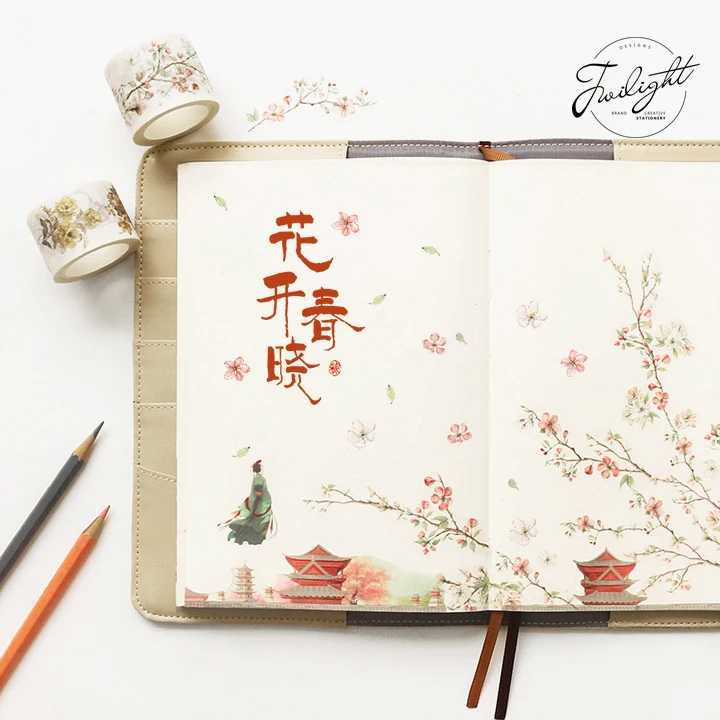 DESIGNS
Twilight
BRAND CREATIVE
STATIONERY
花
开春
晓